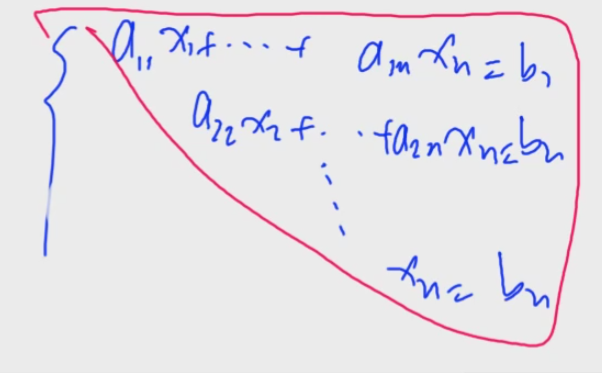 a₁₁x₁+⋯+ a₁ₙxₙ=b₁
a₂₂x₂+⋯+a₂ₙxₙ=b₂
⋱
xₙ=bₙ